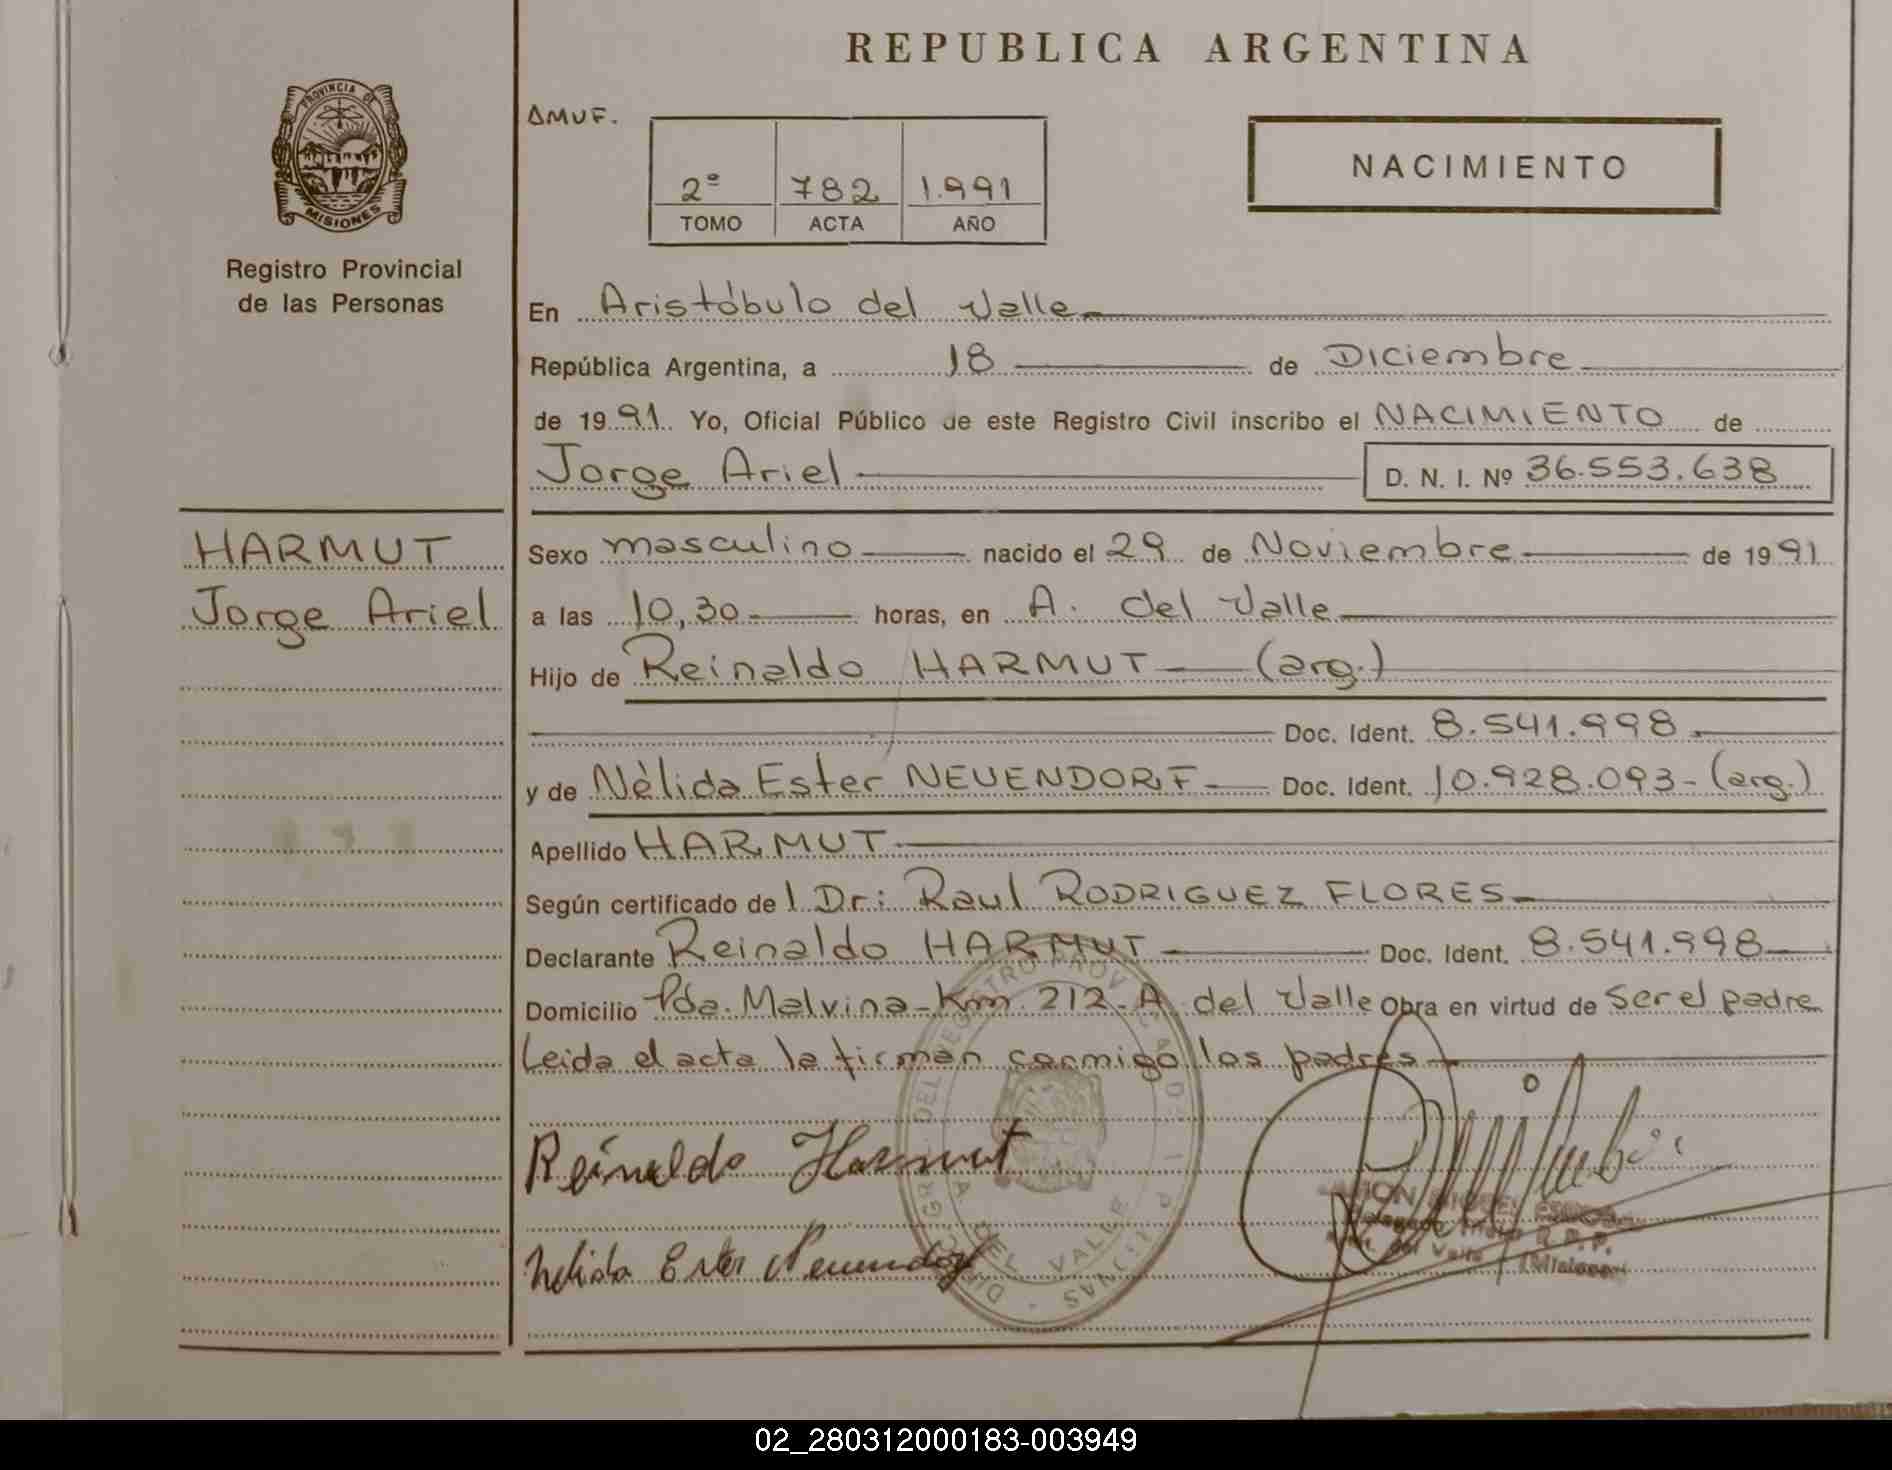 REPUBLICA ARGENTINA
PROVINCIA DE
MISIONES
Registro Provincial
de las Personas
AMUF.
2º 782 1.991
TOMO ACTA AÑO
NACIMIENTO
En Aristóbulo del Valle
República Argentina, a 18 de Diciembre
de 1991 Yo, Oficial Público de este Registro Civil inscribo el NACIMIENTO de
Jorge Ariel D. N. I. Nº 36.553.638
HARMUT
Jorge Ariel
Sexo masculino nacido el 29 de Noviembre de 1991
a las 10,30 horas, en A. del Valle
Hijo de Reinaldo HARMUT (arg.)
Doc. Ident. 8.541.998
y de Nélida Ester NEUENDORF Doc. Ident. 10.928.093-(arg.)
Apellido HARMUT
Según certificado del Dr: Raul RODRIGUEZ FLORES
Declarante Reinaldo HARMUT Doc. Ident. 8.541.998
Domicilio Pda. Malvina-Km 212-A. del Valle Obra en virtud de Ser el padre
Leida el acta la firman conmigo los padres
Reinaldo Harmut
Nelida Ester Neuendorf
DEL VALLE
R. P. P.
del Valle (Misiones)
02_280312000183-003949